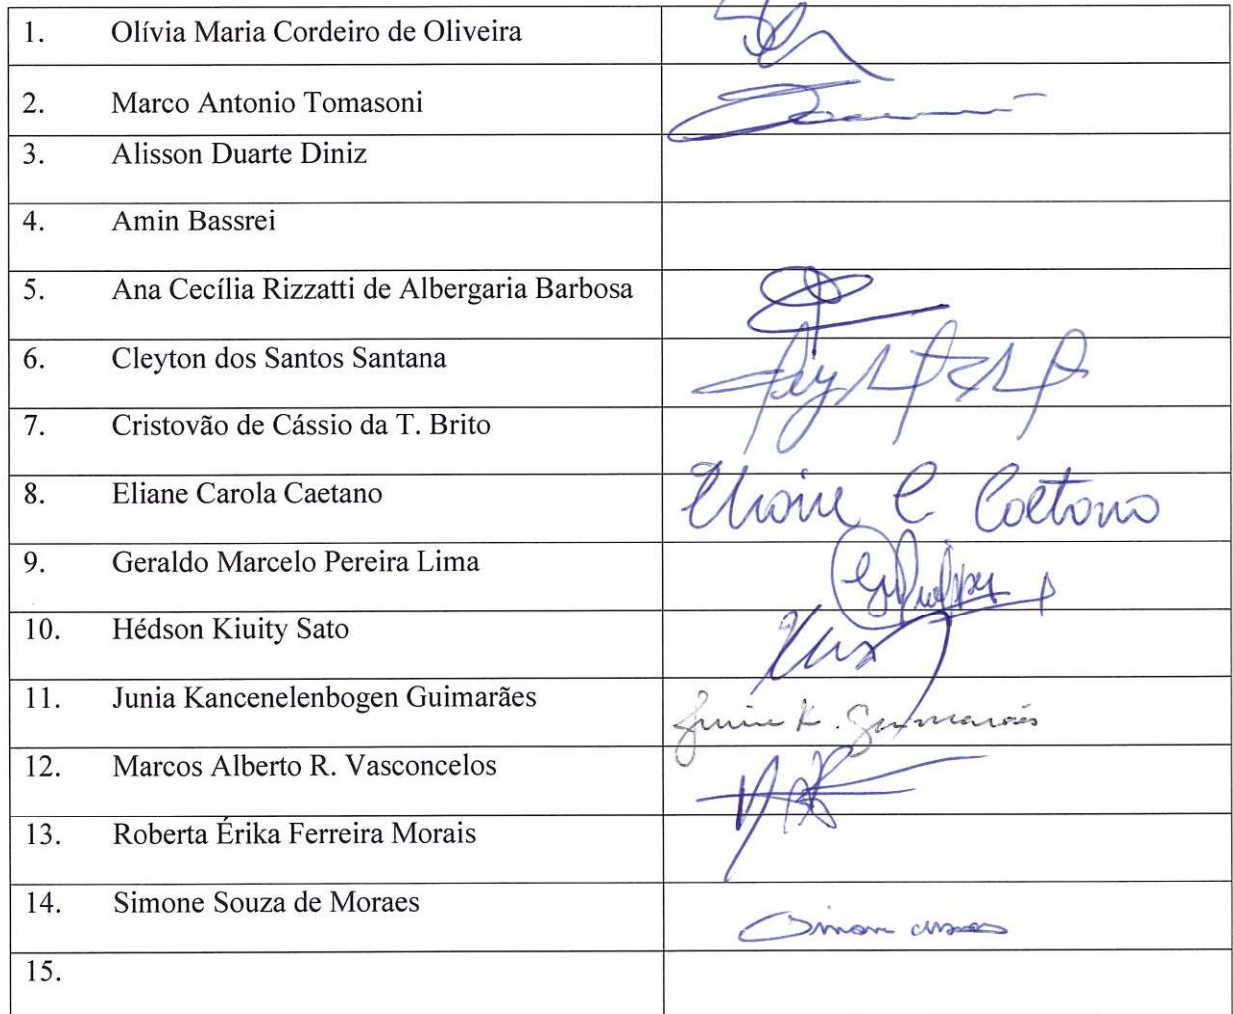 1. Olívia Maria Cordeiro de Oliveira
2. Marco Antonio Tomasoni
3. Alisson Duarte Diniz
4. Amin Bassrei
5. Ana Cecília Rizzatti de Albergaria Barbosa
6. Cleyton dos Santos Santana
7. Cristovão de Cássio da T. Brito
8. Eliane Carola Caetano Eliane C Caetano
9. Geraldo Marcelo Pereira Lima
10. Hédson Kiuity Sato
11. Junia Kancenelenbogen Guimarães Junia K. Guimarães
12. Marcos Alberto R. Vasconcelos
13. Roberta Érika Ferreira Morais
14. Simone Souza de Moraes
15.